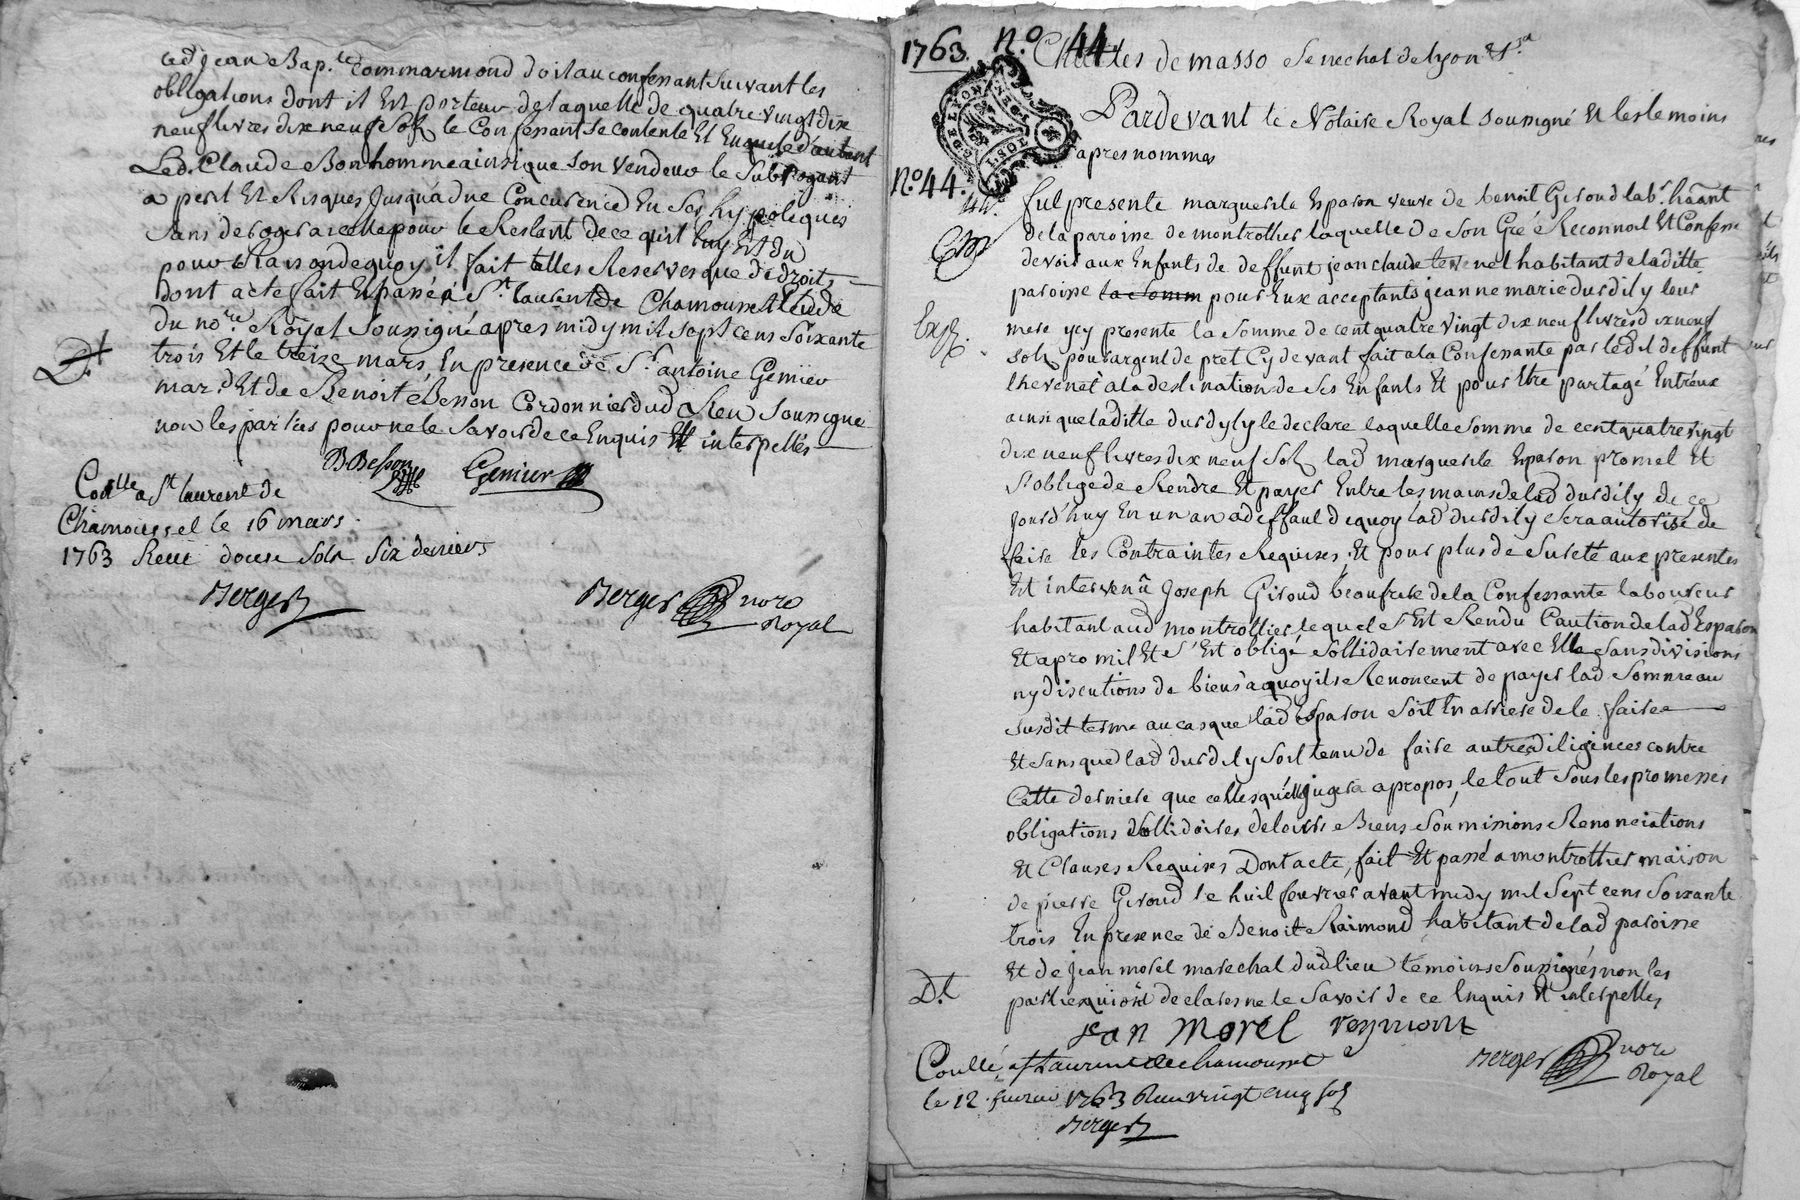 led Jean Bap.te Commarmond doit au confessant suivant les
obligations dont il Est porteur de laquelle de quatre vingt dix
neuf livres dix neuf Sols le Confessant se contente Et En quitte d'autant
Led. Claude Bonhomme ainsi que son vendeur le Subrogeant
a peril Et Risques Jusqu'a due Concurence En Ses hypoteques
sans deroger a icelle pour le Restant de ce qu'il luy Est du
pour Raison de quoy il fait telles Reserves que de droit
Dont acte fait Et passé a St. laurent de Chamousset Etude
du nore. Royal soussigné apres midy mil sept cens Soixante
trois Et le treize mars, En presence de Sr. antoine Gemier
mar.d Et de Benoit Besson Cordonnier dud Lieu Soussignes
non les parties pour ne le Savoir de ce Enquis Et interpellés
Dt
BBesson Gemier
Conlle a St laurent de
Chamousset le 16 mars
1763 Reçu douse sols Six deniers
Berger
Berger nore
Royal
1763. n.o 44
Charles de masso Senechal de lyon &ra
Pardevant le Notaire Royal soussigné Et les temoins
apres nommes
N.o 44.
fut presente marguerite Esparon veuve de benoit Giroud labr. hãant
de la paroisse de montrottier laquelle de Son Gré a Reconnoit Et Confesse
devoir aux Enfants de deffunt jean claude thevenet habitant de laditte
paroisse la somm pour Eux acceptants jeanne marie durdily leur
Exp.
mere ycy presente la Somme de cent quatre vingt dix neuf livres dix neuf
sols pour argent de pret Cy devant fait a la Confessante par ledit deffunt
thevenet a la destination de Ses Enfants Et pour Etre partagé Entr'eux
ainsi que laditte durdyly le declare laquelle somme de cent quatre vingt
dix neuf livres dix neuf Sols lad marguerite Esparon promet Et
s'oblige de Rendre Et payer Entre les mains de lad durdily de ce
jourd'huy En un an a deffaut de quoy lad durdily Sera autorisé de
faire les Contraintes Requises, Et pour plus de Sureté aux presentes
Est intervenû Joseph Giroud beaufrere de la Confessante laboureur
habitant aud montrottier lequel s'Est Rendu Caution de lad Esparon
Et a promit Et S'Est obligé sollidairement avec Elle Sans divisions
ny discutions de biens a quoy ils Renoncent de payer lad Somme au
susdit terme au cas que lad Esparon Soit En arriere de le faire
Et sans que lad durdily soit tenu de faire autres diligences contre
Cette derniere que celles qu'elle jugera apropos, le tout Sous les promesses
obligations Sollidaires de leurs Biens Soumissions Renonciations
Et Clauses Requises Dont acte, fait Et passé a montrottier maison
de pierre Giroud le huit fevrier avant midy mil Sept cens Soixante
trois En presence de Benoit Raimond habitant de lad paroisse
Et de jean morel marechal dud lieu temoins Soussignés non les
Dt
parties qui ont declarer ne le Savoir de ce Enquis Et interpelles
jean morel reymont
Conllé a St Laurent de chamousset
le 12 fevrier 1763 Reçu vingt cinq sols
Berger
Berger nore
Royal